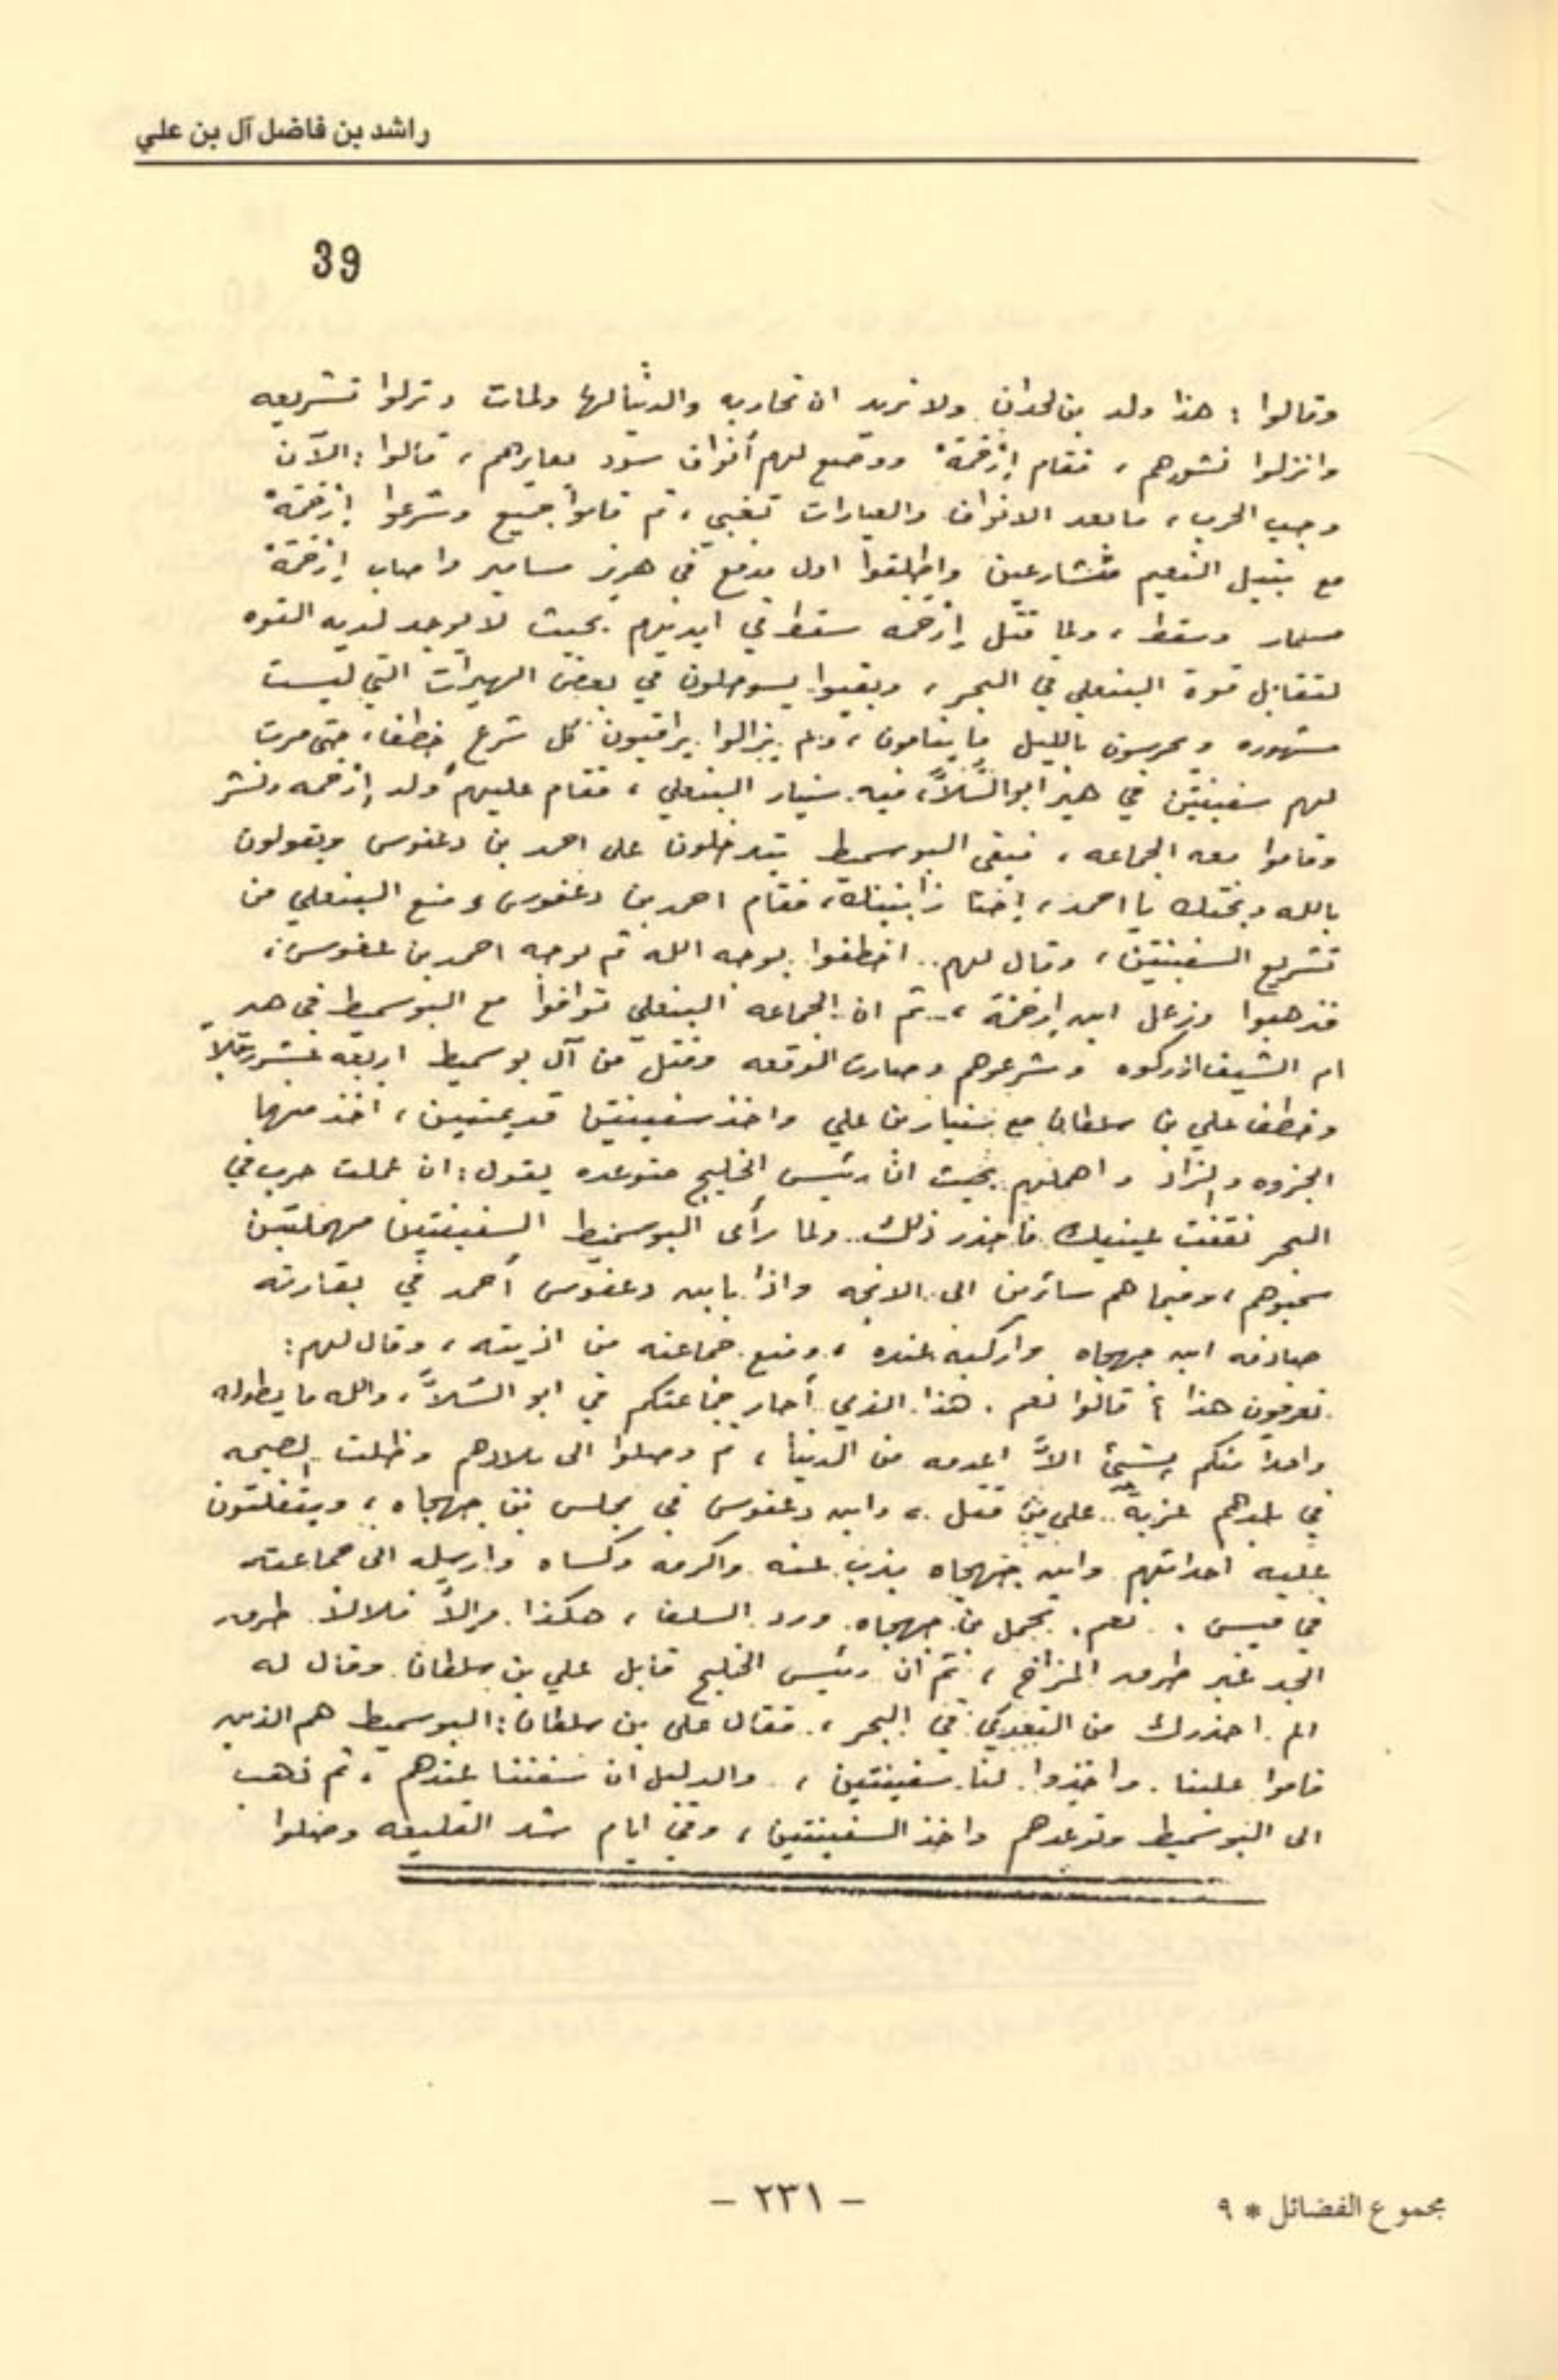 راشد بن فاضل آل بن علي
39
وقالوا : هذا ولد بن لحدان ولا نريد ان نحاربه والدنيا لها ولمات ونزلوا تشريعه
وانزلوا نشورهم ، فقام إزخمة ووضع لهم أنواف سود بعابرهم ، قالوا : الآن
وجب الحرب ، ما بعد الانواف والعبارات تغبي ، ثم قاموا جميع وشرعوا إزخمة
مع بتيل النعيم متشارعين واطلقوا اول مدفع في هريز مسامير واصاب إزخمة
مسمار وسقط ، ولما قتل إزخمه سقط في ايديهم بحيث لا يوجد لديه القوه
لتقابل قوة البنعلي في البحر ، وبقيوا يسوحلون في بعض الهيرات التي ليست
مشهوره ويحرسون بالليل ما ينامون ، ولم يزالوا يراقبون كل شرع خطف ، حتى مرت
لهم سفينتين في هير ابو الشلاَّ ، فيه سيار البنعلي ، فقام عليهم ولد إزخمه ونشر
وقاموا معه الجماعه ، فبقى البوسميط يتدخلون على احمد بن دعفوس ويقولون
بالله وبختك يا احمد ، إحنا زابنينك ، فقام احمد بن دعفوس ومنع البنعلي من
تشريع السفينتين ، وقال لهم .. اخطفوا بوجه الله ثم بوجه احمد بن عفوس ،
فذهبوا وزعل ابن إزخمة ، .. ثم ان الجماعه البنعلي توافوا مع البوسميط في هير
ام الشيف ادركوه وشرعوهم وصارت الوقعه وقتل من آل بوسميط اربعة عشر رجلاً
وخطف علي بن سلطان مع بنيار بن علي واخذ سفينتين قديمتين ، اخذ منهما
الجزوه والزاد واهملهم بحيث ان رئيس الخليج متوعده يقول : ان عملت حرب في
البحر نقفت عينيك فاحذر ذلك .. ولما رأى البوسميط السفينتين مهملتين
سحبوهم ، وفيما هم سائرين الى الانجه واذا بابن دعفوس أحمد في بقارته
صادفه ابن جهجاه واركبه عنده ، ومنع جماعته من اذيته ، وقال لهم :
تعرفون هذا ؟ قالوا نعم . هذا الذي أجار جماعتكم في ابو الشلاَّ ، والله ما يطوله
واحداً منكم بشيئ الاَّ اعدمه من الدنيا ، ثم وصلوا الى بلادهم وظلت الصيحه
في بلدهم عزية .. على من قتل ، وابن دعفوس في مجلس بن جهجاه ، ويتفلتون
عليه احداثهم وابن جهجاه يذب عنه واكرمه وكساه وارسله الى جماعته
في قيس . نعم . تجمل بن جهجاه ورد السلف ، هكذا مرالاً فلالاً . طرب
الجد غير طرب المزاح ، ثم ان رئيس الخليج قابل علي بن سلطان وقال له
الم احذرك من التعدي في البحر ، فقال علي بن سلطان : البوسميط هم الذين
قاموا علينا . واخذوا لنا سفينتين ، والدليل ان سفننا عندهم ، ثم ذهب
الى البوسميط وتوعدهم واخذ السفينتين ، وفي ايام شد القليعه وصلوا
مجموع الفضائل * ٩
– ٢٣١ –